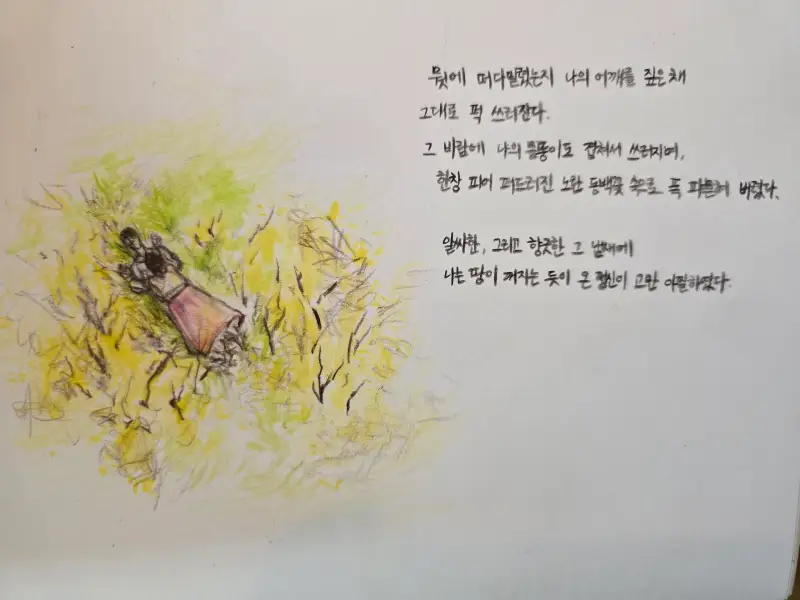 뭣에 떠다밀렸는지 나의 어깨를 짚은채
그대로 퍽 쓰러진다.
그 바람에 나의 몸뚱이도 겹쳐서 쓰러지며,
한창 피어 퍼드러진 노란 동백꽃 속으로 푹 파묻혀 버렸다.
알싸한, 그리고 향긋한 그 냄새에
나는 땅이 꺼지는 듯이 온 정신이 고만 아찔하였다.